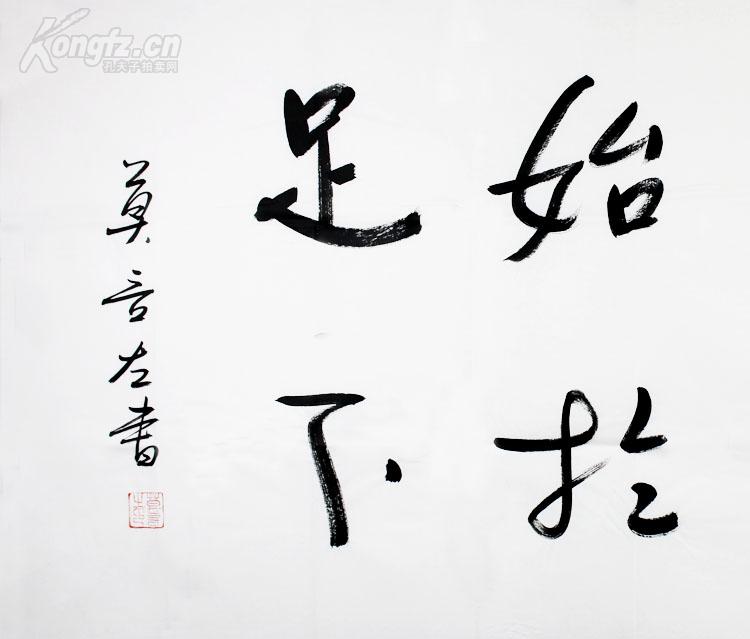 始於
足下
莫言左書
Kongfz.cn
孔夫子拍卖网